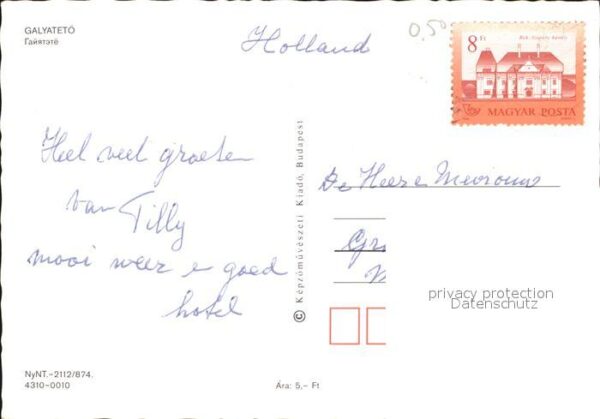 GALYATETŐ
Галятетё
Holland
0,50
8 Ft
MAGYAR POSTA
Heel veel groeten
van Tilly
mooi weer e goed
hotel
© Képzőművészeti Kiadó, Budapest
De Heer e Mevrouw
privacy protection
Datenschutz
NyNT.–2112/874.
4310–0010
Ára: 5,– Ft